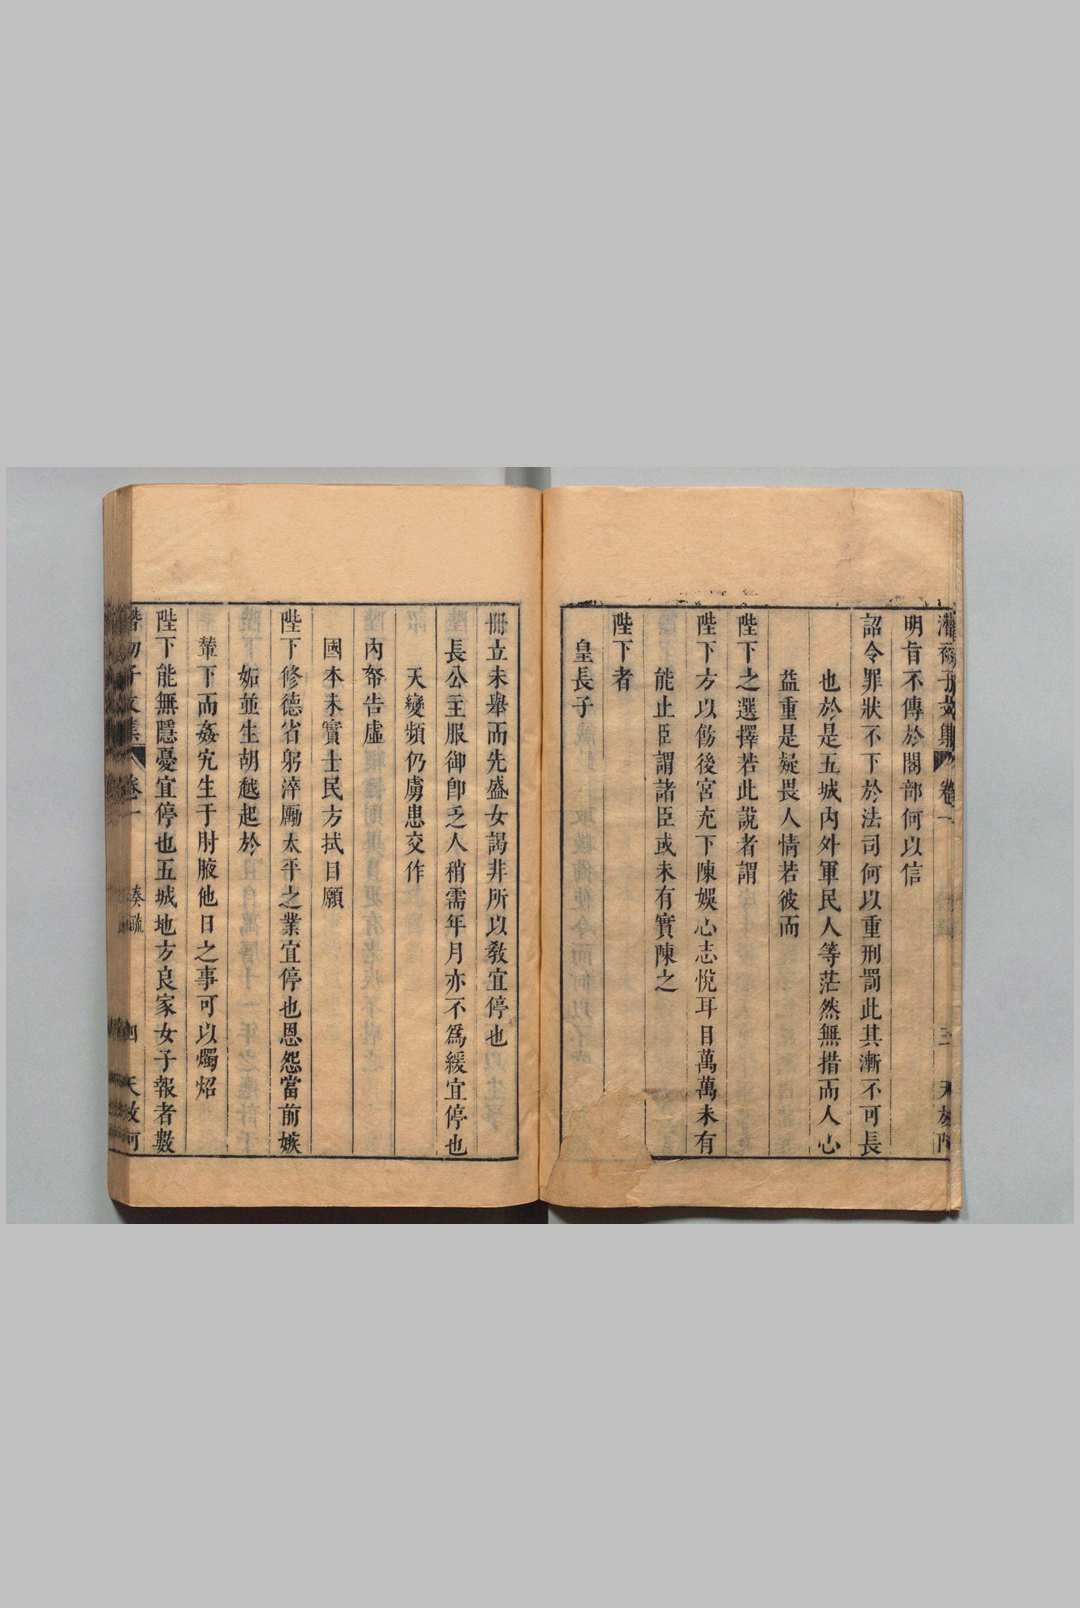 明旨不傳於閣部何以信
詔令罪狀不下於法司何以重刑罰此其漸不可長
也於是五城内外軍民人等茫然無措而人心
益重是疑畏人情若彼而
陛下之選擇若此說者謂
陛下方以飭後宮充下陳娛心志悅耳目萬萬未有
能止臣謂諸臣或未有實陳之
陛下者
皇長子
冊立未舉而先盛女謁非所以教宜停也
長公主服御卽乏人稍需年月亦不爲緩宜停也
天變頻仍虜患交作
内帑告虛
國本未實士民方拭目願
陛下修德省躬淬勵太平之業宜停也恩怨當前嫉
妬並生胡越起於
輦下而姦宄生于肘腋他日之事可以燭炤
陛下能無隱憂宜停也五城地方良家女子報者數
子文集 卷一 奏疏 四